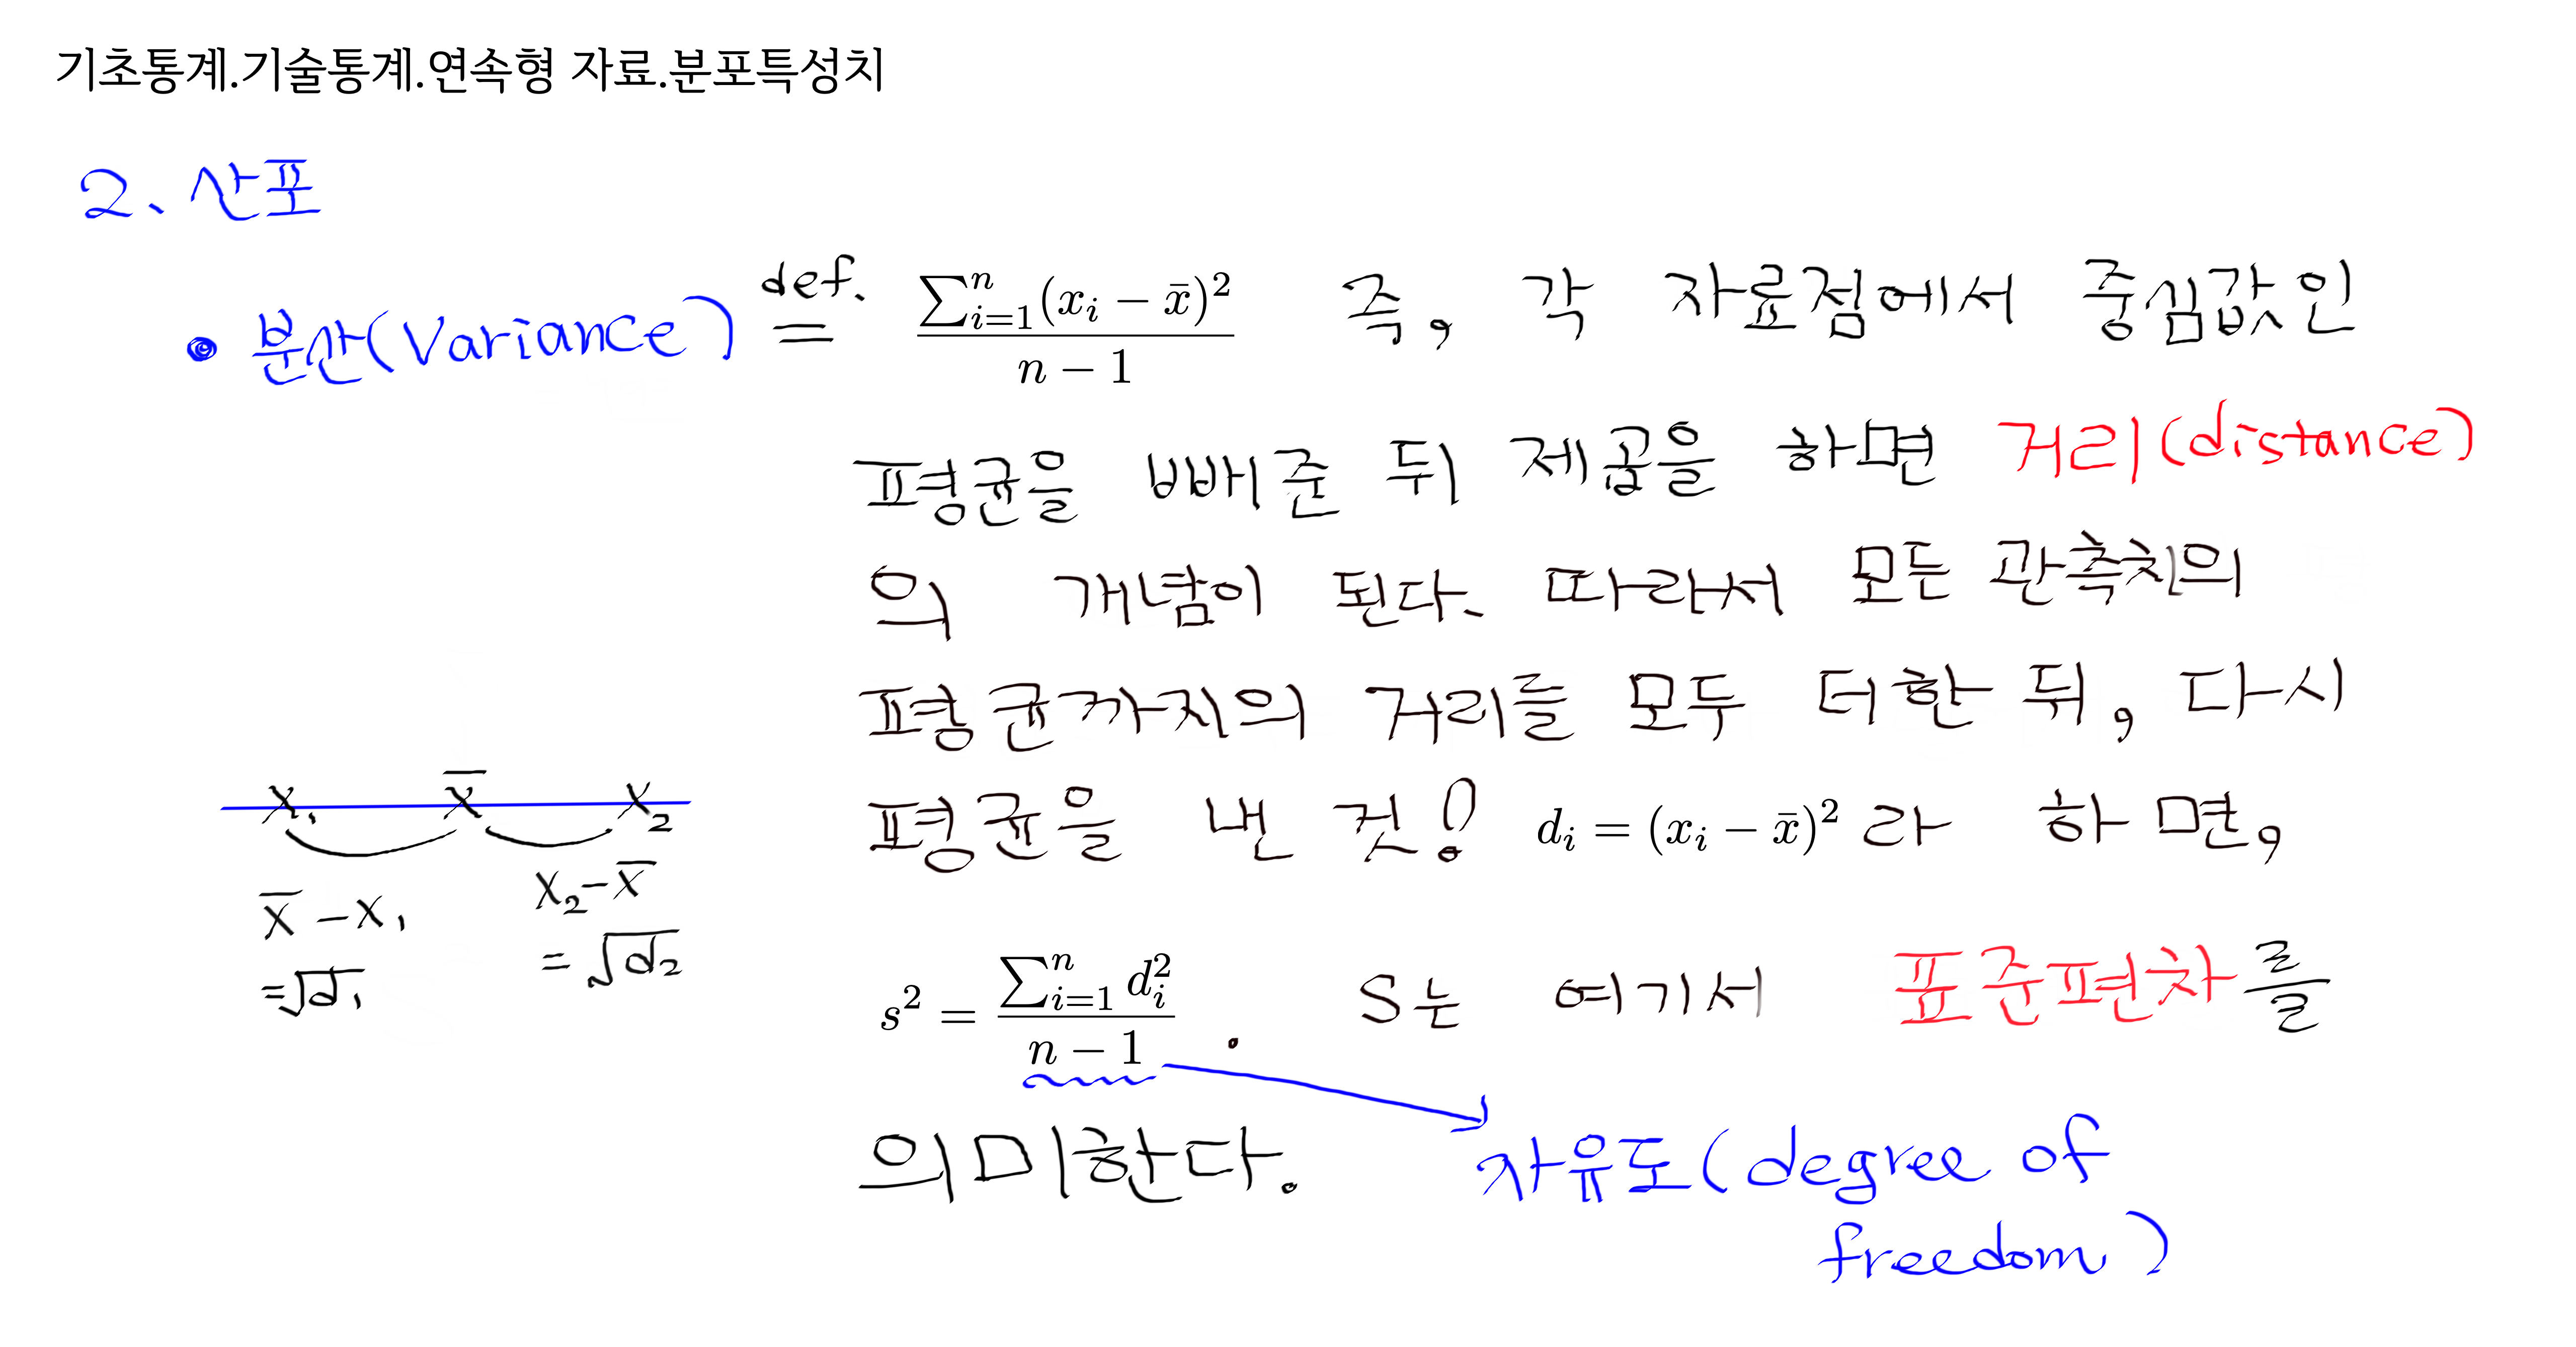 기초통계.기술통계.연속형 자료.분포특성치
2. 산포
• 분산(Variance) def. = \frac{\sum_{i=1}^{n}(x_i - \bar{x})^2}{n-1} 즉, 각 자료점에서 중심값인
평균을 빼준 뒤 제곱을 하면 거리(distance)
의 개념이 된다. 따라서 모든 관측치의
평균까지의 거리를 모두 더한 뒤, 다시
평균을 낸 것! d_i = (x_i - \bar{x})^2 라 하면,
s^2 = \frac{\sum_{i=1}^{n} d_i^2}{n-1} . S는 여기서 표준편차를
의미한다. 자유도(degree of
freedom)
x_1 \bar{x} x_2
\bar{x} - x_1 x_2 - \bar{x}
= \sqrt{d_1} = \sqrt{d_2}